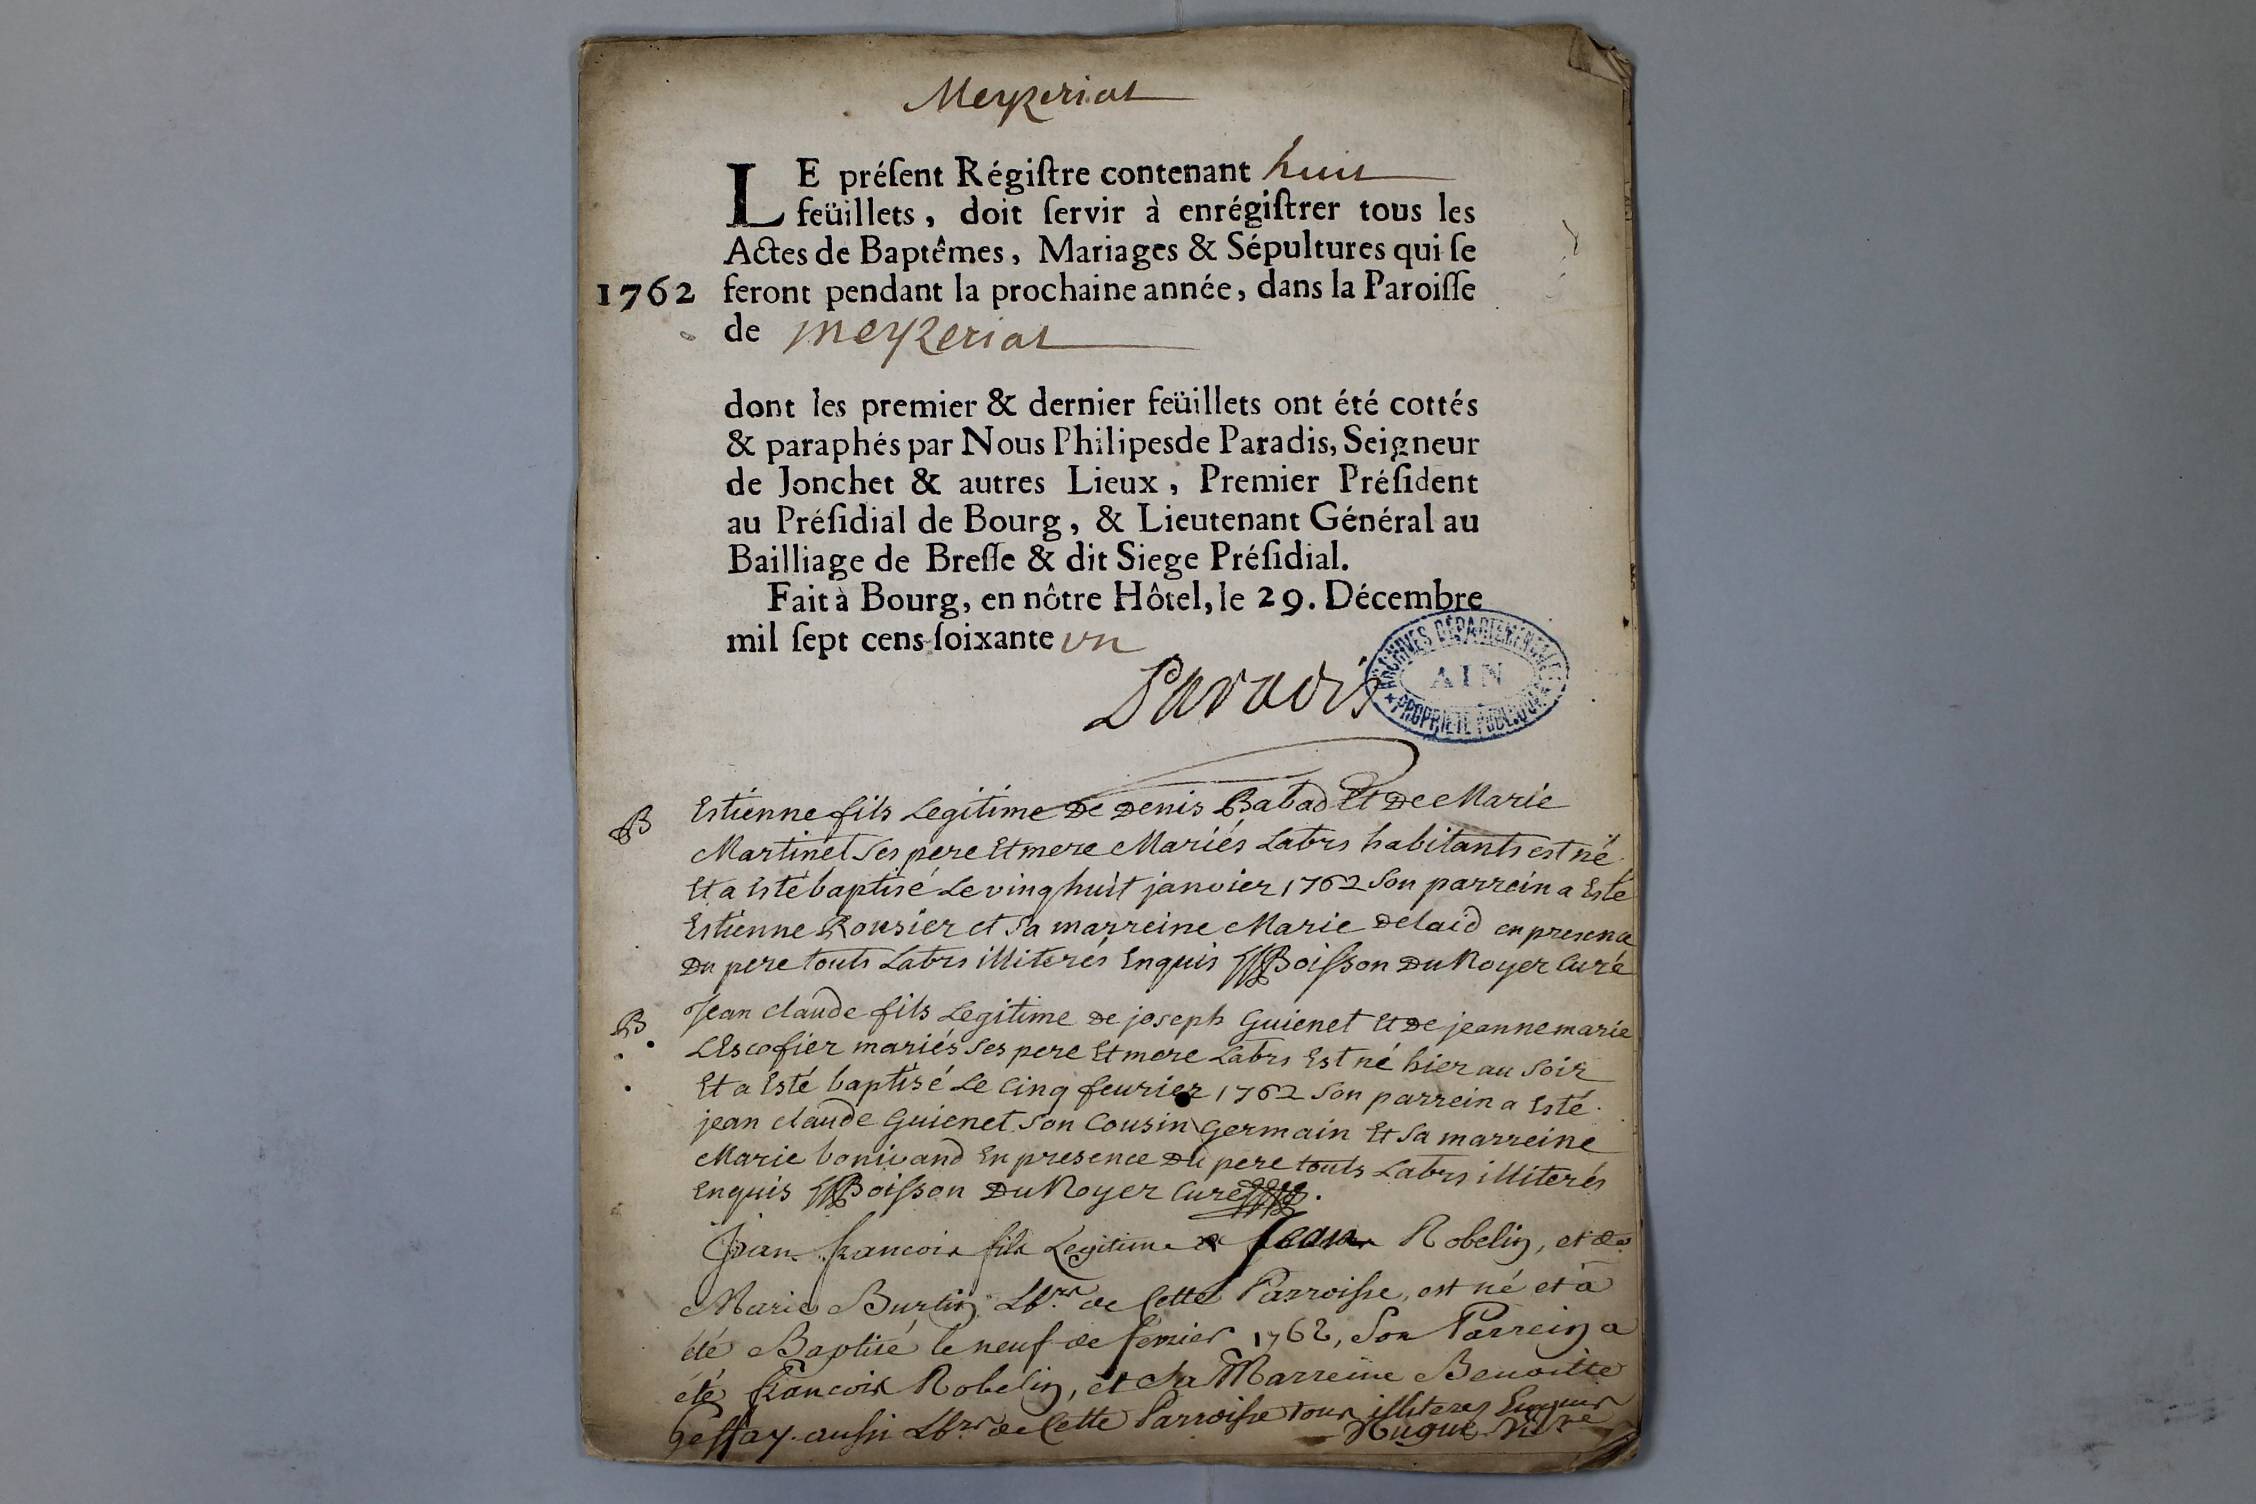 Meyzeriat
LE préſent Régiſtre contenant huit
feüillets, doit ſervir à enrégiſtrer tous les
Actes de Baptêmes, Mariages & Sépultures qui ſe
1762 feront pendant la prochaine année, dans la Paroiſſe
de meyzeriat
dont les premier & dernier feüillets ont été cottés
& paraphés par Nous Philipes de Paradis, Seigneur
de Jonchet & autres Lieux, Premier Préſident
au Préſidial de Bourg, & Lieutenant Général au
Bailliage de Breſſe & dit Siege Préſidial.
Fait à Bourg, en nôtre Hôtel, le 29. Décembre
mil ſept cens ſoixante un
Paradis
ARCHIVES DÉPARTEMENTALES
AIN
PROPRIÉTÉ PUBLIQUE
B Estienne fils Legitime De Denis Babad Et De Marie
Martinet Ses pere Et mere Mariés Labrs habitants est né
Et a Esté baptisé Le vinghuit janvier 1762 Son parrein a Esté
Estienne Rousier et Sa marreine Marie Delaid en presence
Du pere touts Labrs illiterés Enquis Boisson Du Noyer Curé
B Jean claude fils Legitime de joseph Guienet Et De jeanne marie
LEscofier mariés Ses pere Et mere Labrs Est né hier au Soir
Et a Esté baptisé Le Cinq feurier 1762 Son parrein a Esté
jean claude Guienet Son Cousin Germain Et Sa marreine
Marie bonivand En presence Du pere touts Labrs illiterés
Enquis Boisson Du Noyer Curé
Jean francois fils Legitime de Jean Robelin, et de
Marie Burtin Lbrs de Cette Parroisse, est né et à
été Baptisé le neuf de fevrier 1762, Son Parrein a
été francois Robelin, et Sa Marreine Benoitte
aussi Lbrs de Cette Parroisse tous illiteres Enquis
Hugue Vicre